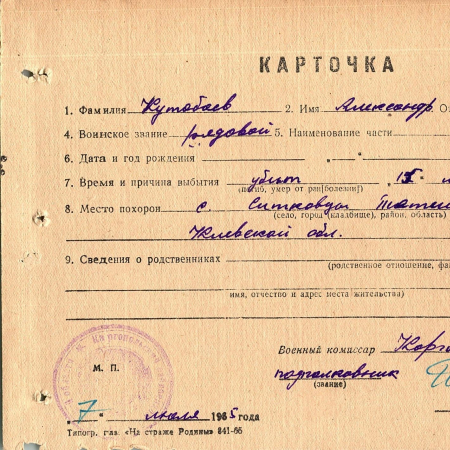 КАРТОЧКА
1. Фамилия Кутобаев 2. Имя Александр О
4. Воинское звание рядовой 5. Наименование части
6. Дата и год рождения
7. Время и причина выбытия убит 15
(погиб, умер от ран[болезни])
8. Место похорон с.
(село, город [кладбище], район, область)
Киевской обл.
9. Сведения о родственниках
(родственное отношение, фа
имя, отчество и адрес места жительства)
Военный комиссар
М. П.
подполковник
(звание)
7 июля 1965 года
Типогр. газ. «На страже Родины» 841-65